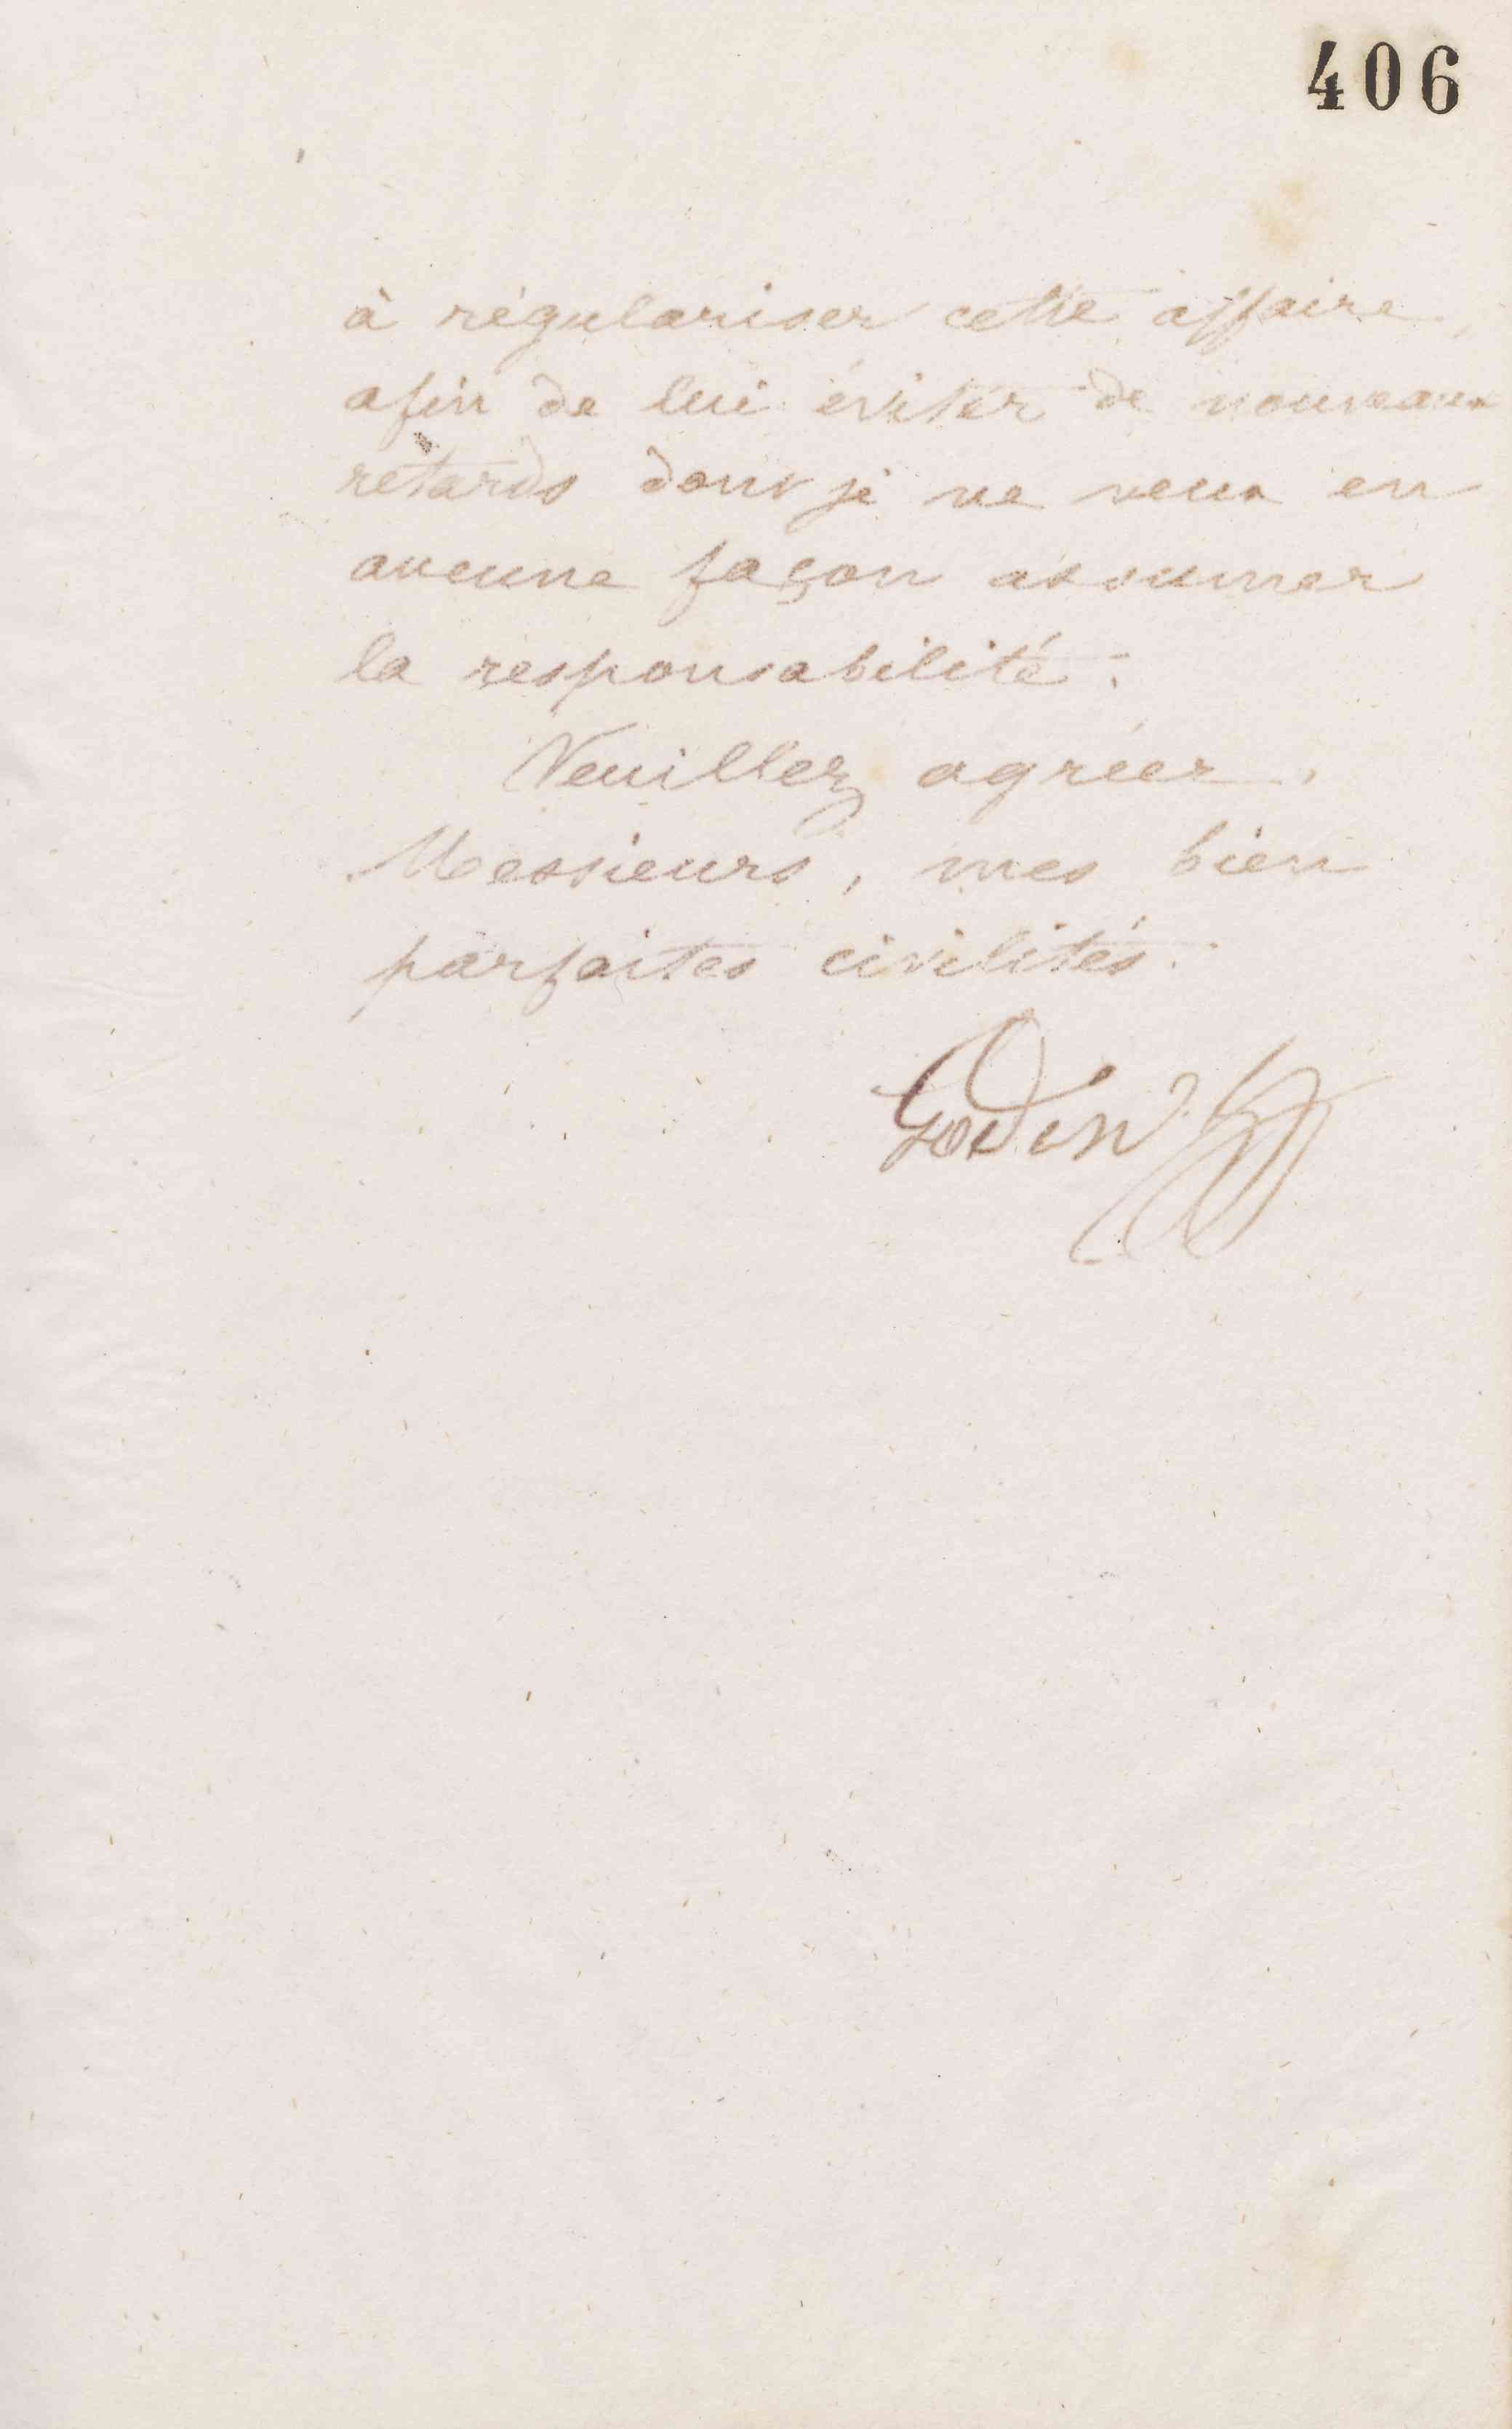 406
à régulariser cette affaire,
afin de lui éviter de nouveaux
retards dont je ne veux en
aucune façon assumer
la responsabilité.
Veuillez agréer,
Messieurs, mes bien
parfaites civilités.
Godin